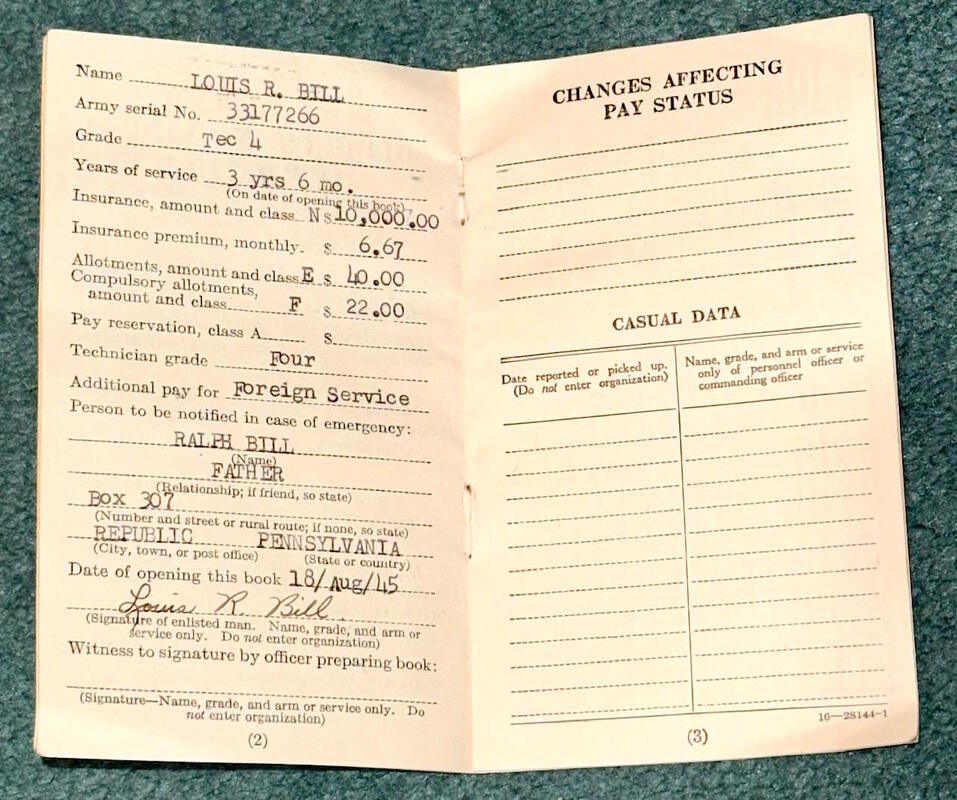 Name LOUIS R. BILL
Army serial No. 33177266
Grade Tec 4
Years of service 3 yrs 6 mo.
(On date of opening this book)
Insurance, amount and class N $10,000.00
Insurance premium, monthly. $ 6.67
Allotments, amount and class E $ 40.00
Compulsory allotments,
amount and class F $ 22.00
Pay reservation, class A $
Technician grade Four
Additional pay for Foreign Service
Person to be notified in case of emergency:
RALPH BILL
(Name)
FATHER
(Relationship; if friend, so state)
Box 307
(Number and street or rural route; if none, so state)
REPUBLIC PENNSYLVANIA
(City, town, or post office) (State or country)
Date of opening this book 18/Aug/45
Louis R. Bill
(Signature of enlisted man. Name, grade, and arm or
service only. Do not enter organization)
Witness to signature by officer preparing book:
(Signature—Name, grade, and arm or service only. Do
not enter organization)
(2)
CHANGES AFFECTING
PAY STATUS
CASUAL DATA
Date reported or picked up.
(Do not enter organization)
Name, grade, and arm or service
only of personnel officer or
commanding officer
16—28144-1
(3)